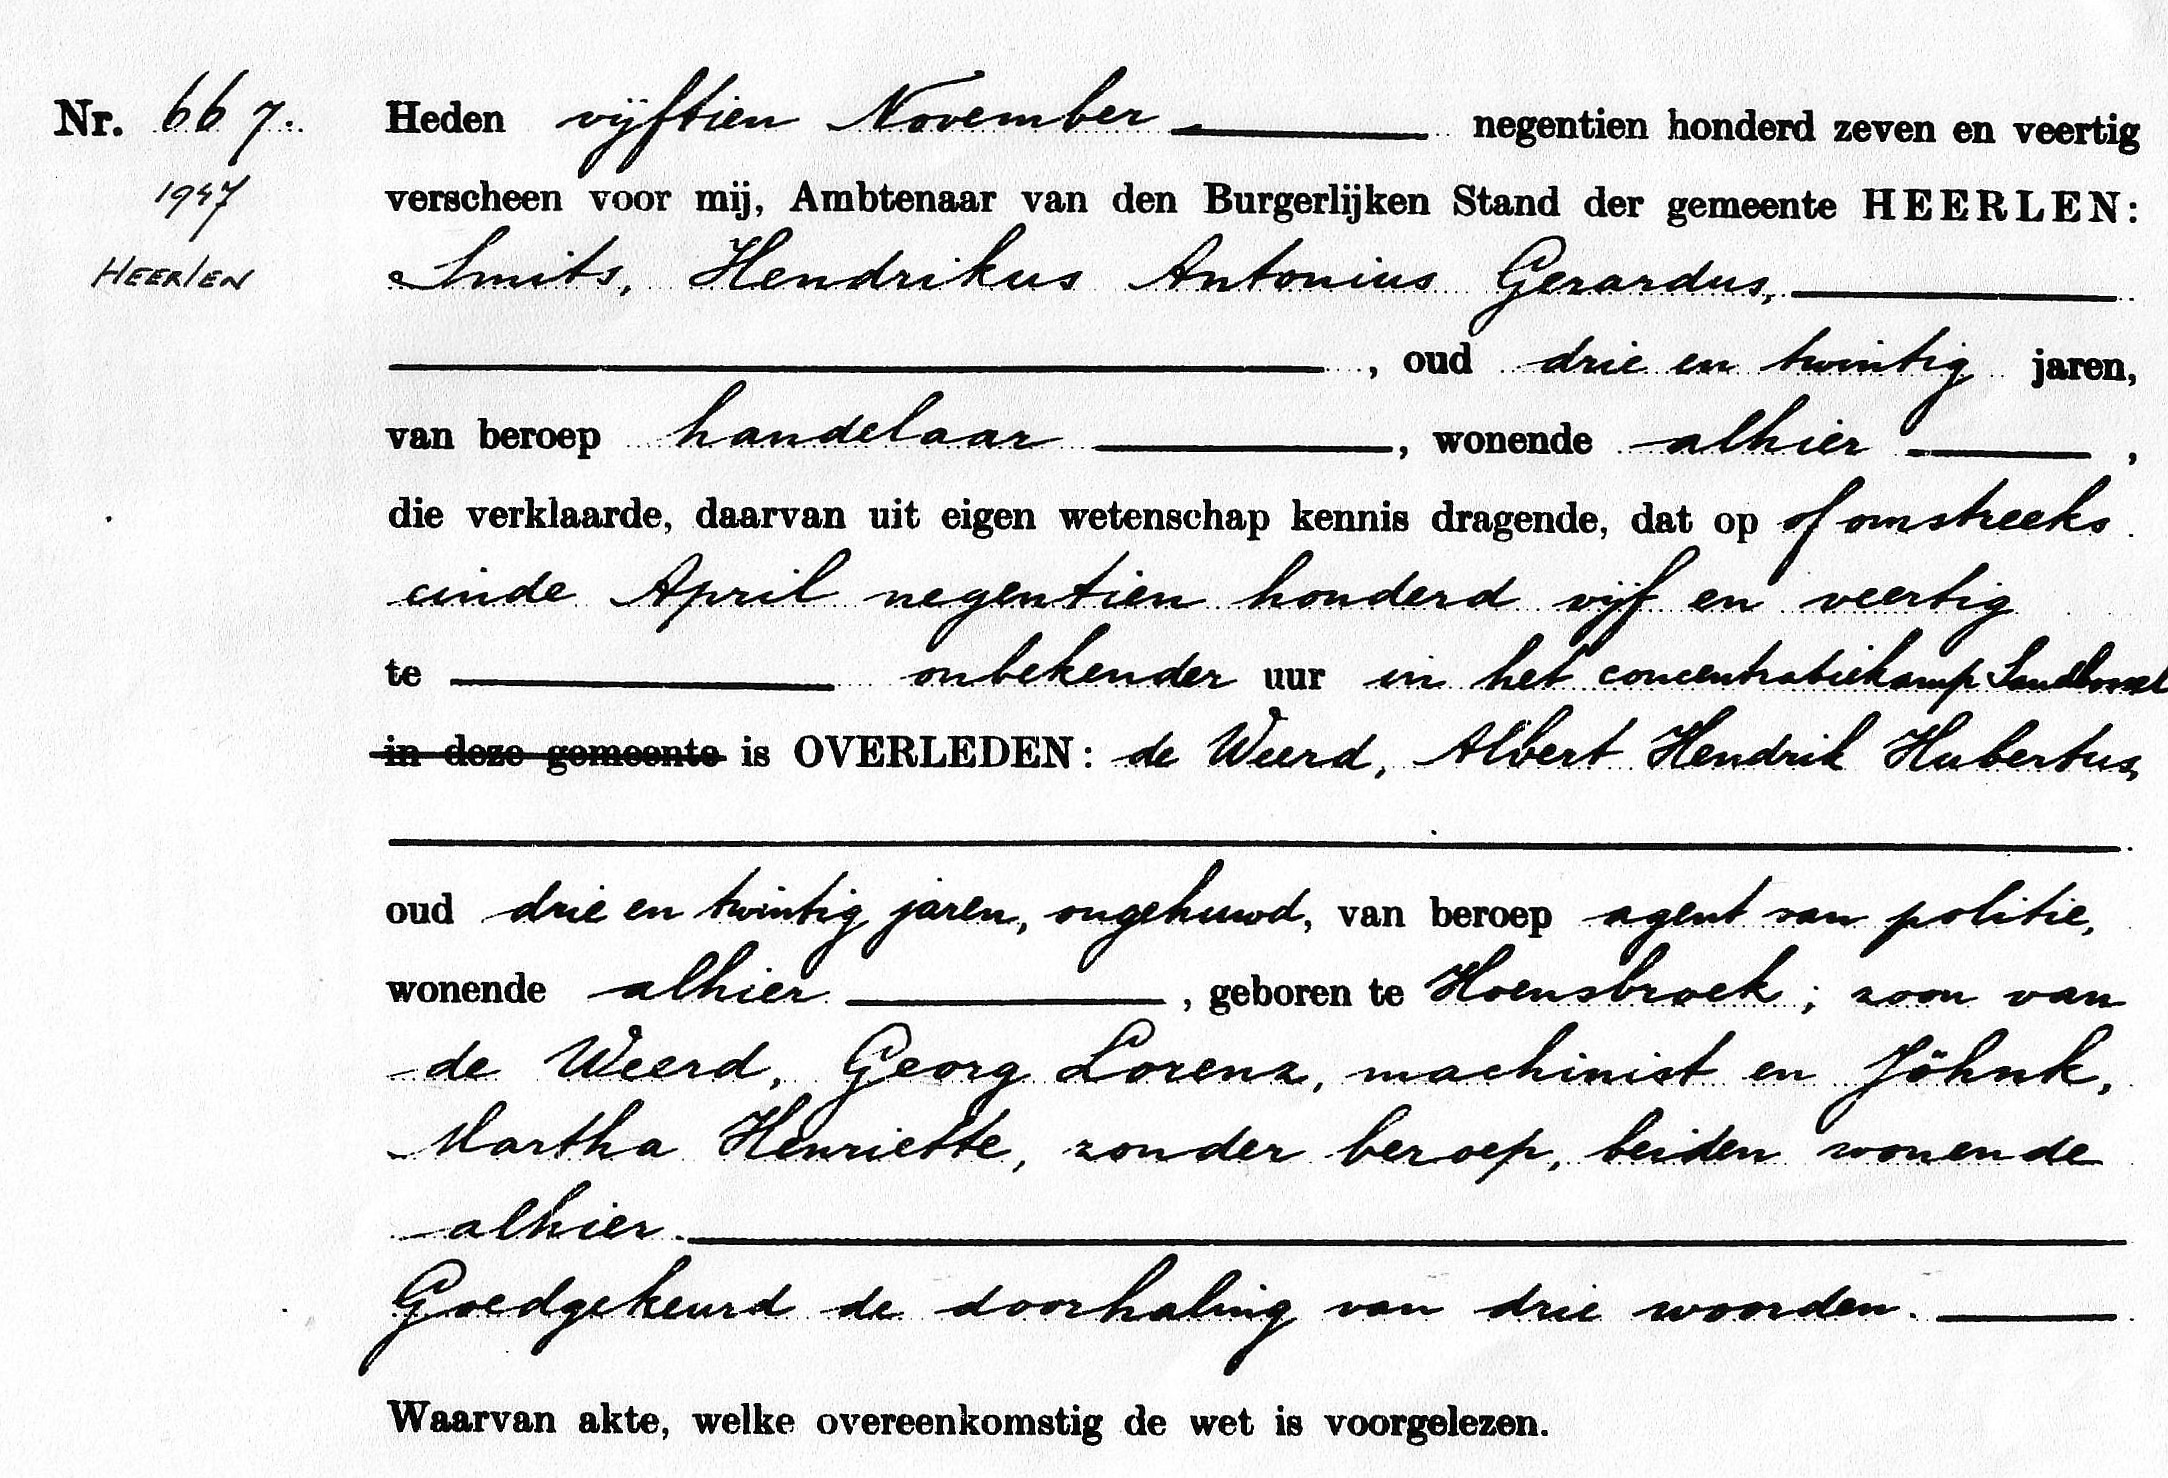 Nr. 667. Heden vijftien November negentien honderd zeven en veertig
1947 verscheen voor mij, Ambtenaar van den Burgerlijken Stand der gemeente HEERLEN:
HEERLEN Smits, Hendrikus Antonius Gerardus,
, oud drie en twintig jaren,
van beroep handelaar , wonende alhier ,
die verklaarde, daarvan uit eigen wetenschap kennis dragende, dat op of omstreeks
einde April negentien honderd vijf en veertig
te onbekender uur in het concentratiekamp
in deze gemeente is OVERLEDEN: de Weerd, Albert Hendrik Hubertus,
oud drie en twintig jaren, ongehuwd, van beroep agent van politie,
wonende alhier , geboren te Hoensbroek; zoon van
de Weerd, Georg Lorenz, machinist en Jöhnk,
Martha Henriette, zonder beroep, beiden wonende
alhier.
Goedgekeurd de doorhaling van drie woorden.
Waarvan akte, welke overeenkomstig de wet is voorgelezen.